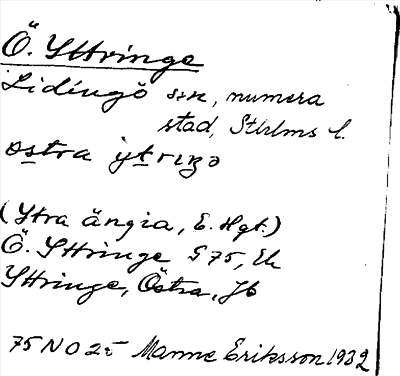 Ö. Yttringe
Lidingö sn, numera
stad, Sthlms l.
ostra ytriŋə
(Ytra ängia, E. Hgt.)
Ö. Yttringe S 75, Ek
Yttringe, Östra, Jb
75 NO 25 Manne Eriksson 1932